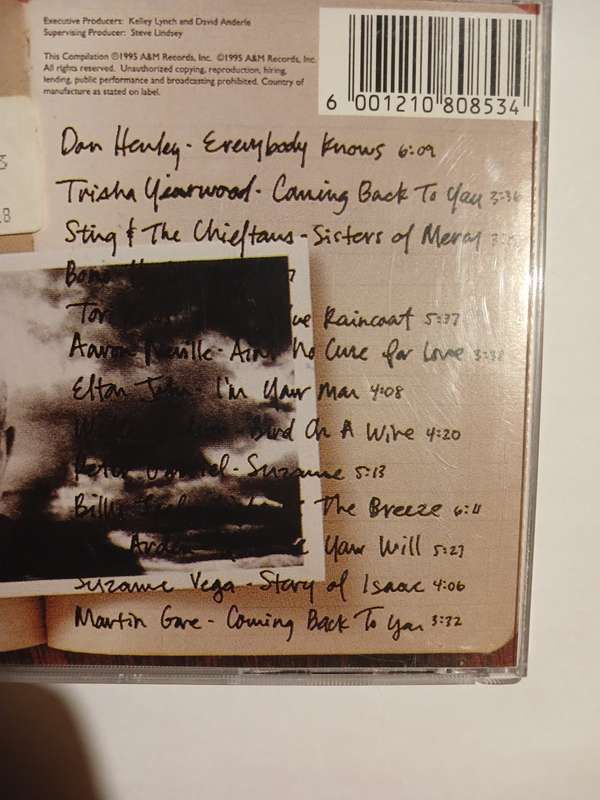 Executive Producers: Kelley Lynch and David Anderle
Supervising Producer: Steve Lindsey
This Compilation ℗1995 A&M Records, Inc. ©1995 A&M Records, Inc.
All rights reserved. Unauthorized copying, reproduction, hiring,
lending, public performance and broadcasting prohibited. Country of
manufacture as stated on label.
6 001210 808534
8
Don Henley - Everybody Knows 6:09
Trisha Yearwood - Coming Back To You 3:36
Sting & The Chieftans - Sisters of Mercy
Bono
Tori Raincoat 5:37
Aaron Neville - Ain't No Cure for Love 3:38
Elton John - I'm Your Man 4:08
Bird On A Wire 4:20
Peter Gabriel - Suzanne 5:13
Billy The Breeze 6:11
Arden Your Will 5:27
Suzanne Vega - Story of Isaac 4:06
Martin Gore - Coming Back To You 3:32